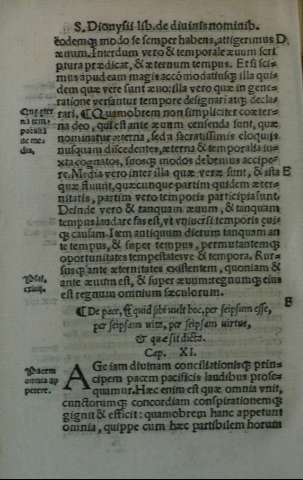 S. Dionysii lib. de diuinis nominib.
eodemq; modo se semper habens, attigerimus D
æuum. Interdum vero & temporale æuum scri
ptura prædicat, & æternum tempus. Et si sci-
mus apud eam magis accōmodatiusq; illa qui
dem quæ vere sunt æuo: illa vero quæ in gene-
ratione versantur tempore designari atq; decla
rari. Quamobrem non simpliciter coæter-
na deo, qui est ante æuum censenda sunt, quæ
nominatur æterna, sed a sacratissimis eloquiis
nusquam discedentes, æterna & temporalia iu-
xta cognatos, suosq; modos debemus accipe-
re. Media vero inter illa quæ vera sunt, & ista E
quæ fluunt, quæcunque partim quidem æter-
nitatis, partim vero temporis participia sunt.
Deinde vero & tanquam æuum, & tanquam
tempus laudare fas est, vt vniuersi temporis cuius
q; causam. Item antiquum dierum tanquam an
te tempus, & super tempus, permutantemq;
oportunitates tempestatesve & tempora. Rur-
susq; ante æternitates existentem, quoniam &
ante æuum est, & super æuum: regnumq; eius
est regnum omnium sæculorum.
De pace, & quid sibi uult hoc, per seipsum esse,
per seipsam uita, per seipsam uirtus,
& quæ sic dicta.
Cap. XI.
Pacem
omnia ap
petere.
AGe iam diuinam conciliationisq; prin-
cipem pacem pacificis laudibus prose-
quamur. Hæc enim est quæ omnia vnit,
cunctorumq; concordiam conspirationemq;
gignit & efficit: quamobrem hanc appetunt
omnia, quippe cum hæc partibilem horum